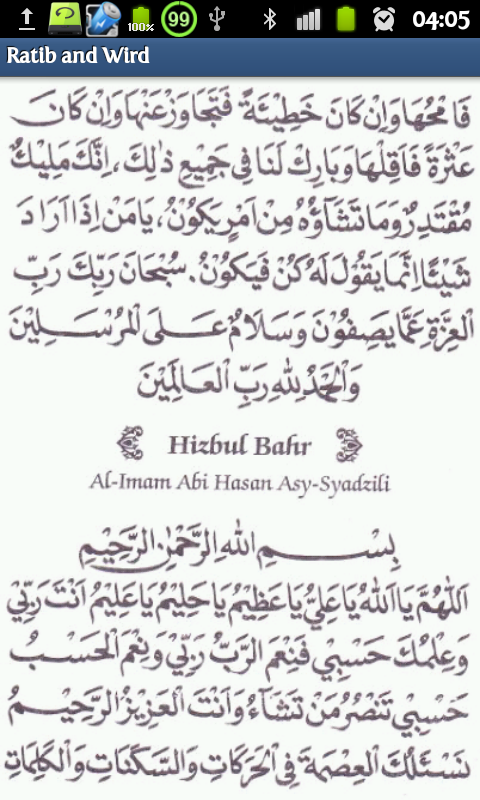 100%
99
04:05
Ratib and Wird
فَامْحُهَا وَاِنْ كَانَ خَطِيْئَةً فَتَجَاوَزْ عَنْهَا وَاِنْ كَانَ
عَثْرَةً فَاَقِلْهَا وَبَارِكْ لَنَا فِي جَمِيْعِ ذٰلِكَ، اِنَّكَ مَلِيْكٌ
مُقْتَدِرٌ وَمَا تَشَآؤُهُ مِنْ اَمْرٍ يَكُوْنُ، يَا مَنْ اِذَا اَرَادَ
شَيْئًا اِنَّمَا يَقُوْلُ لَهُ كُنْ فَيَكُوْنُ. سُبْحَانَ رَبِّكَ رَبِّ
الْعِزَّةِ عَمَّا يَصِفُوْنَ وَسَلَامٌ عَلَى الْمُرْسَلِيْنَ
وَالْحَمْدُ لِلّٰهِ رَبِّ الْعَالَمِيْنَ
Hizbul Bahr
Al-Imam Abi Hasan Asy-Syadzili
بِسْمِ اللهِ الرَّحْمٰنِ الرَّحِيْمِ
اَللّٰهُمَّ يَا اَللهُ يَا عَلِيُّ يَا عَظِيْمُ يَا حَلِيْمُ يَا عَلِيْمُ اَنْتَ رَبِّيْ
وَعِلْمُكَ حَسْبِيْ فَنِعْمَ الرَّبُّ رَبِّيْ وَنِعْمَ الْحَسْبُ
حَسْبِيْ تَنْصُرُ مَنْ تَشَآءُ وَاَنْتَ الْعَزِيْزُ الرَّحِيْمُ
نَسْئَلُكَ الْعِصْمَةَ فِي الْحَرَكَاتِ وَالسَّكَنَاتِ وَالْكَلِمَاتِ